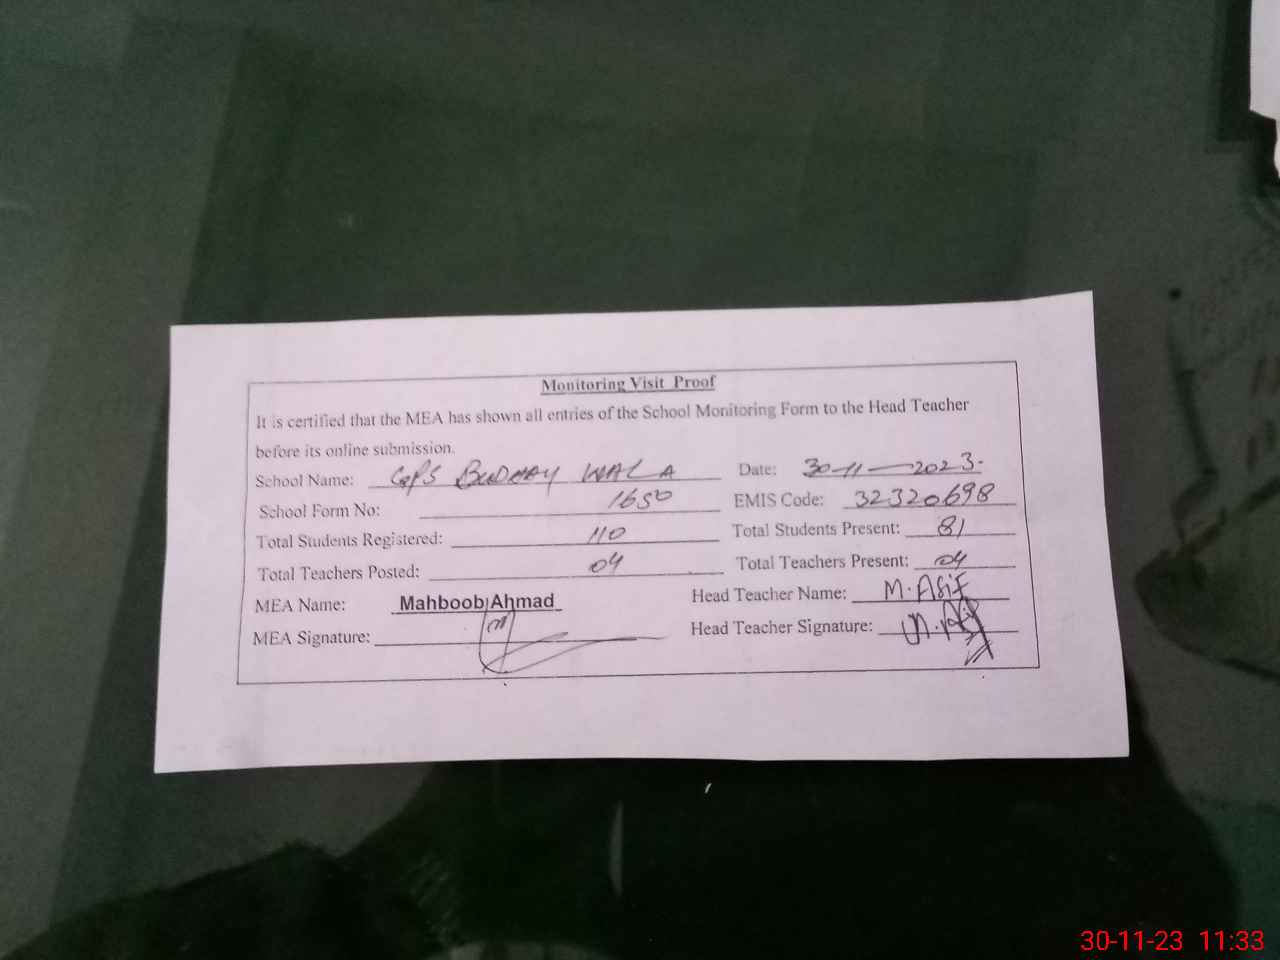 Monitoring Visit Proof
It is certified that the MEA has shown all entries of the School Monitoring Form to the Head Teacher
before its online submission.
School Name: GPS BUDHAY WALA Date: 30-11-2023.
School Form No: 1650 EMIS Code: 32320698
Total Students Registered: 110 Total Students Present: 81
Total Teachers Posted: 04 Total Teachers Present: 04
MEA Name: Mahboob Ahmad Head Teacher Name: M. Asif
MEA Signature: Head Teacher Signature: M. Asif
30-11-23 11:33